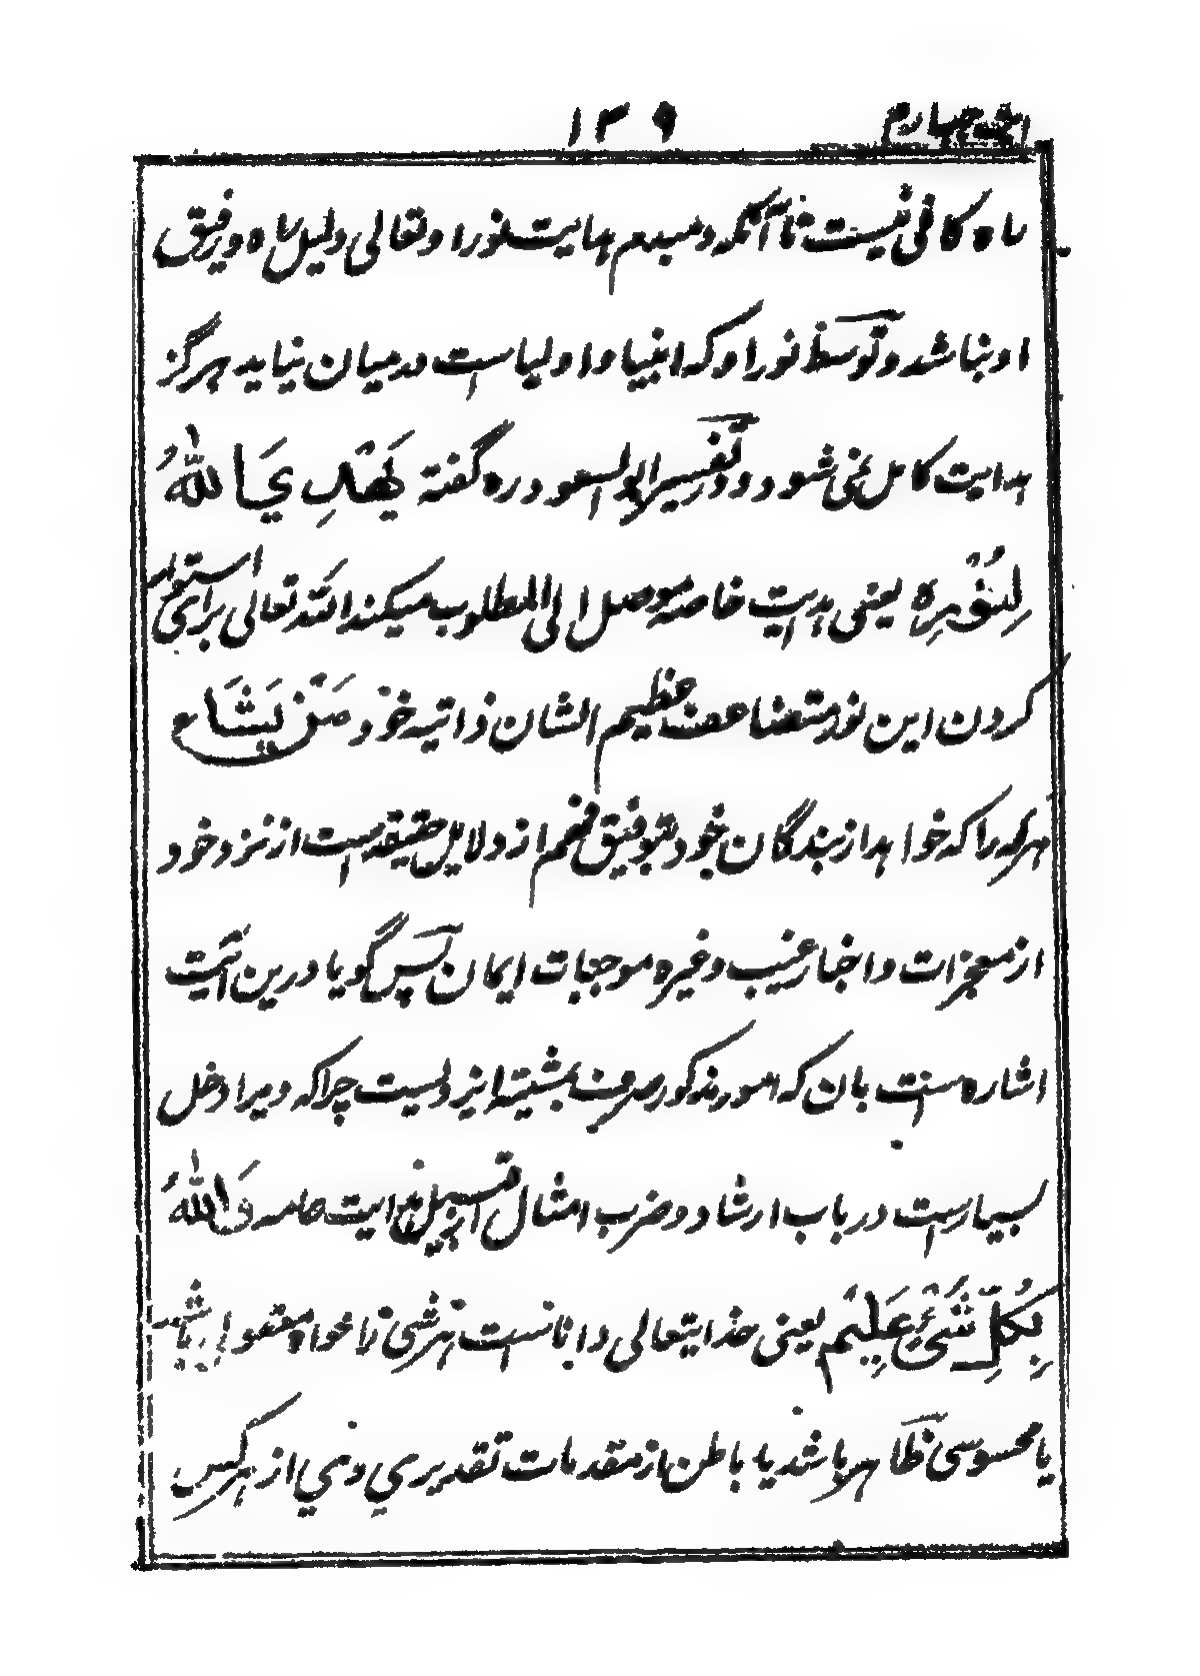 ۱۳۹
چهارم
راه کافی نیست تا آنکه دمبدم هدایت نور او تعالی دلیل راه و رفیق
او نباشد و توسط نور او که انبیا و اولیاست در میان نیاید هرگز
هدایت کامل نمی شود و در تفسیر ابو السعود ره گفته یَهْدِی اللّٰهُ
لِنُوْرِهٖ یعنی هدایت خاصه موصل الی المطلوب میکند الله تعالی برای
کردن این نور متضاعف عظیم الشان ذاتیه خود مَنْ یَّشَاءُ
هر که را که خواهد از بندگان خود بتوفیق فهم از دلایل حقیقت از نزد خود
از معجزات و اخبار غیب و غیره موجبات ایمان پس گویا درین آیت
اشاره است بان که امور مذکور صرف بمشیت ایزدیست چرا که ویرا دخل
بسیار است در باب ارشاد و ضرب امثال از قبیل هدایت عامه وَاللّٰهُ
بِکُلِّ شَیْءٍ عَلِیْمٌ یعنی خدایتعالی داناست هر شی را خواه معقولی باشد
یا محسوسی ظاهر باشد یا باطن از مقدمات تقدیری و نمی از هر کس